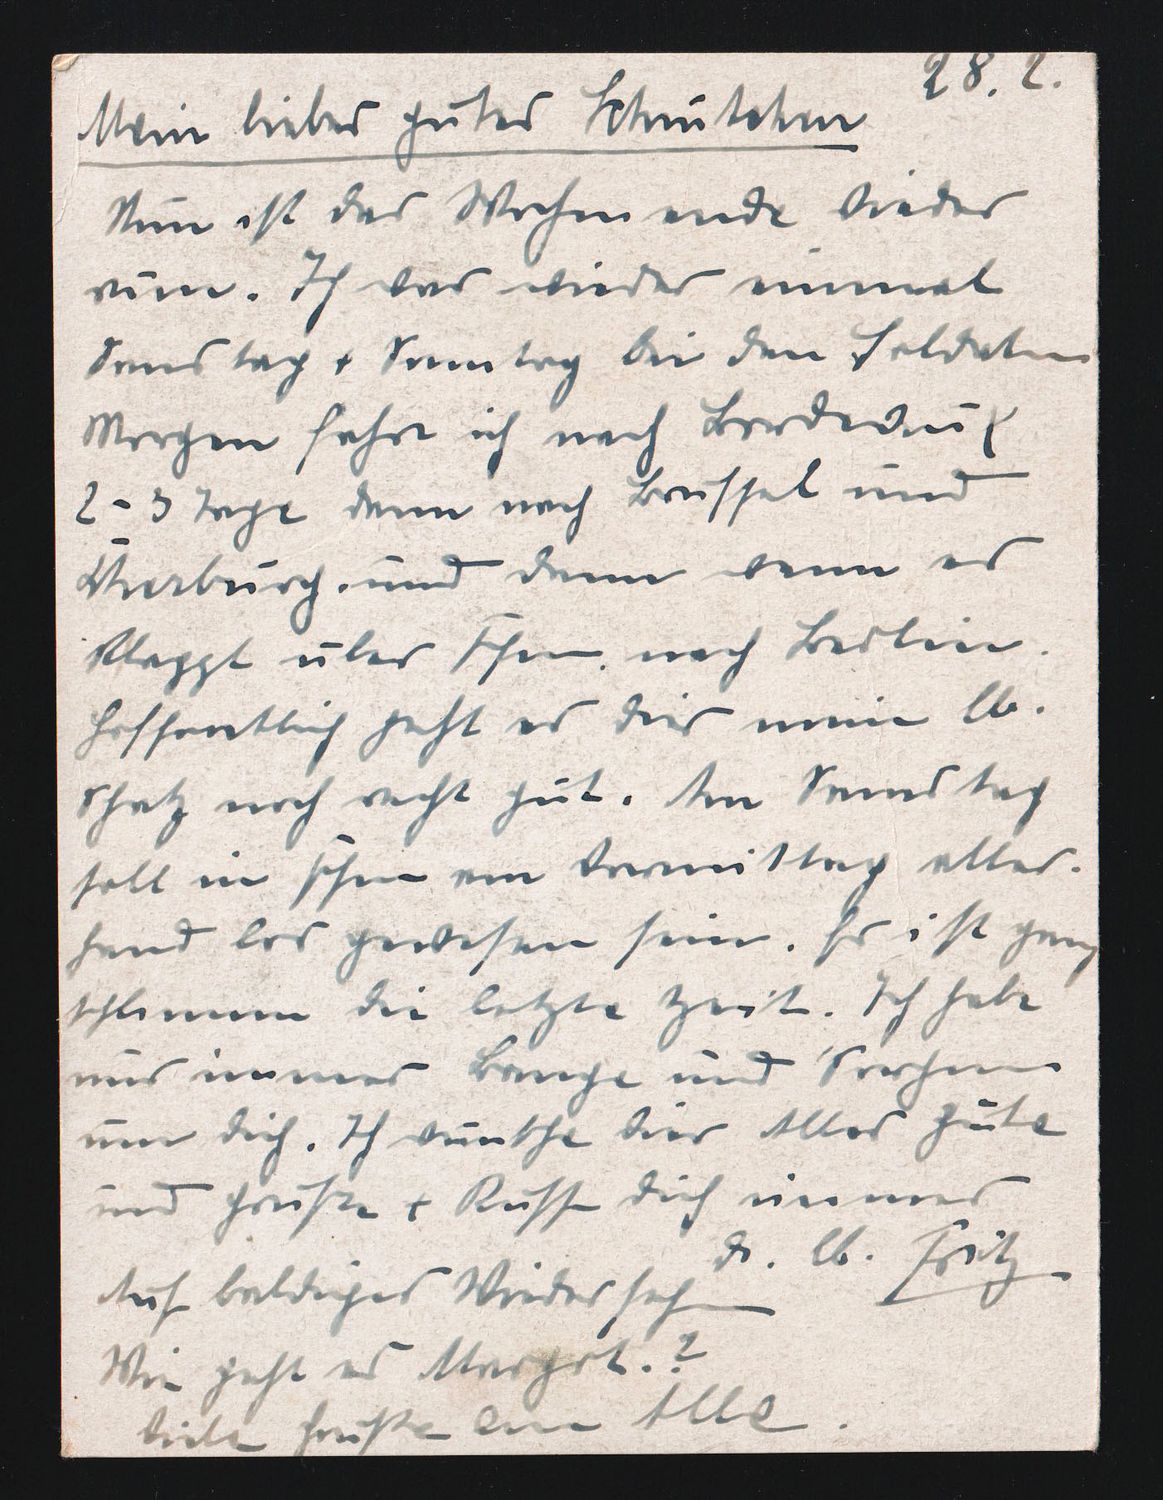 28. 2.
Mein liebes gutes
Nun ist das Wochenende wieder
rum. Ich war wieder einmal
Samstag + Sonntag bei den Soldaten
Morgen fahre ich nach Bordeaux
2-3 Tage dann nach Brüssel und
und dann wenn es
klappt über nach Berlin.
Hoffentlich geht es dir mein lb.
Schatz noch recht gut. Am Samstag
soll in am Vormittag aller-
hand los gewesen sein. Es ist ganz
schlimm die letzte Zeit. Ich habe
nur immer Bange und Sorgen
um dich. Ich wünsche dir Alles Gute
und Grüße + Küsse dich immer
d. lb. Fritz
Auf baldiges Wiedersehn
Wie geht es Margret.?
Viele Grüße an Alle.